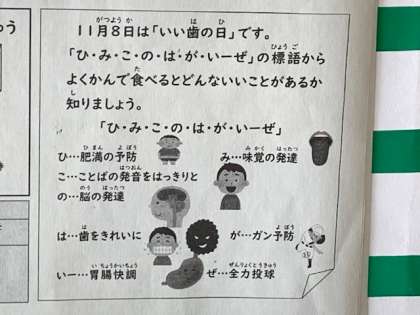 ゅう
11月8日は「いい歯の日」です。
「ひ・み・こ・の・は・が・いーぜ」の標語から
よくかんで食べるとどんないいことがあるか
知りましょう。
「ひ・み・こ・の・は・が・いーぜ」
ひ…肥満の予防
み…味覚の発達
こ…ことばの発音をはっきりと
の…脳の発達
は…歯をきれいに
が…ガン予防
いー…胃腸快調
ぜ…全力投球